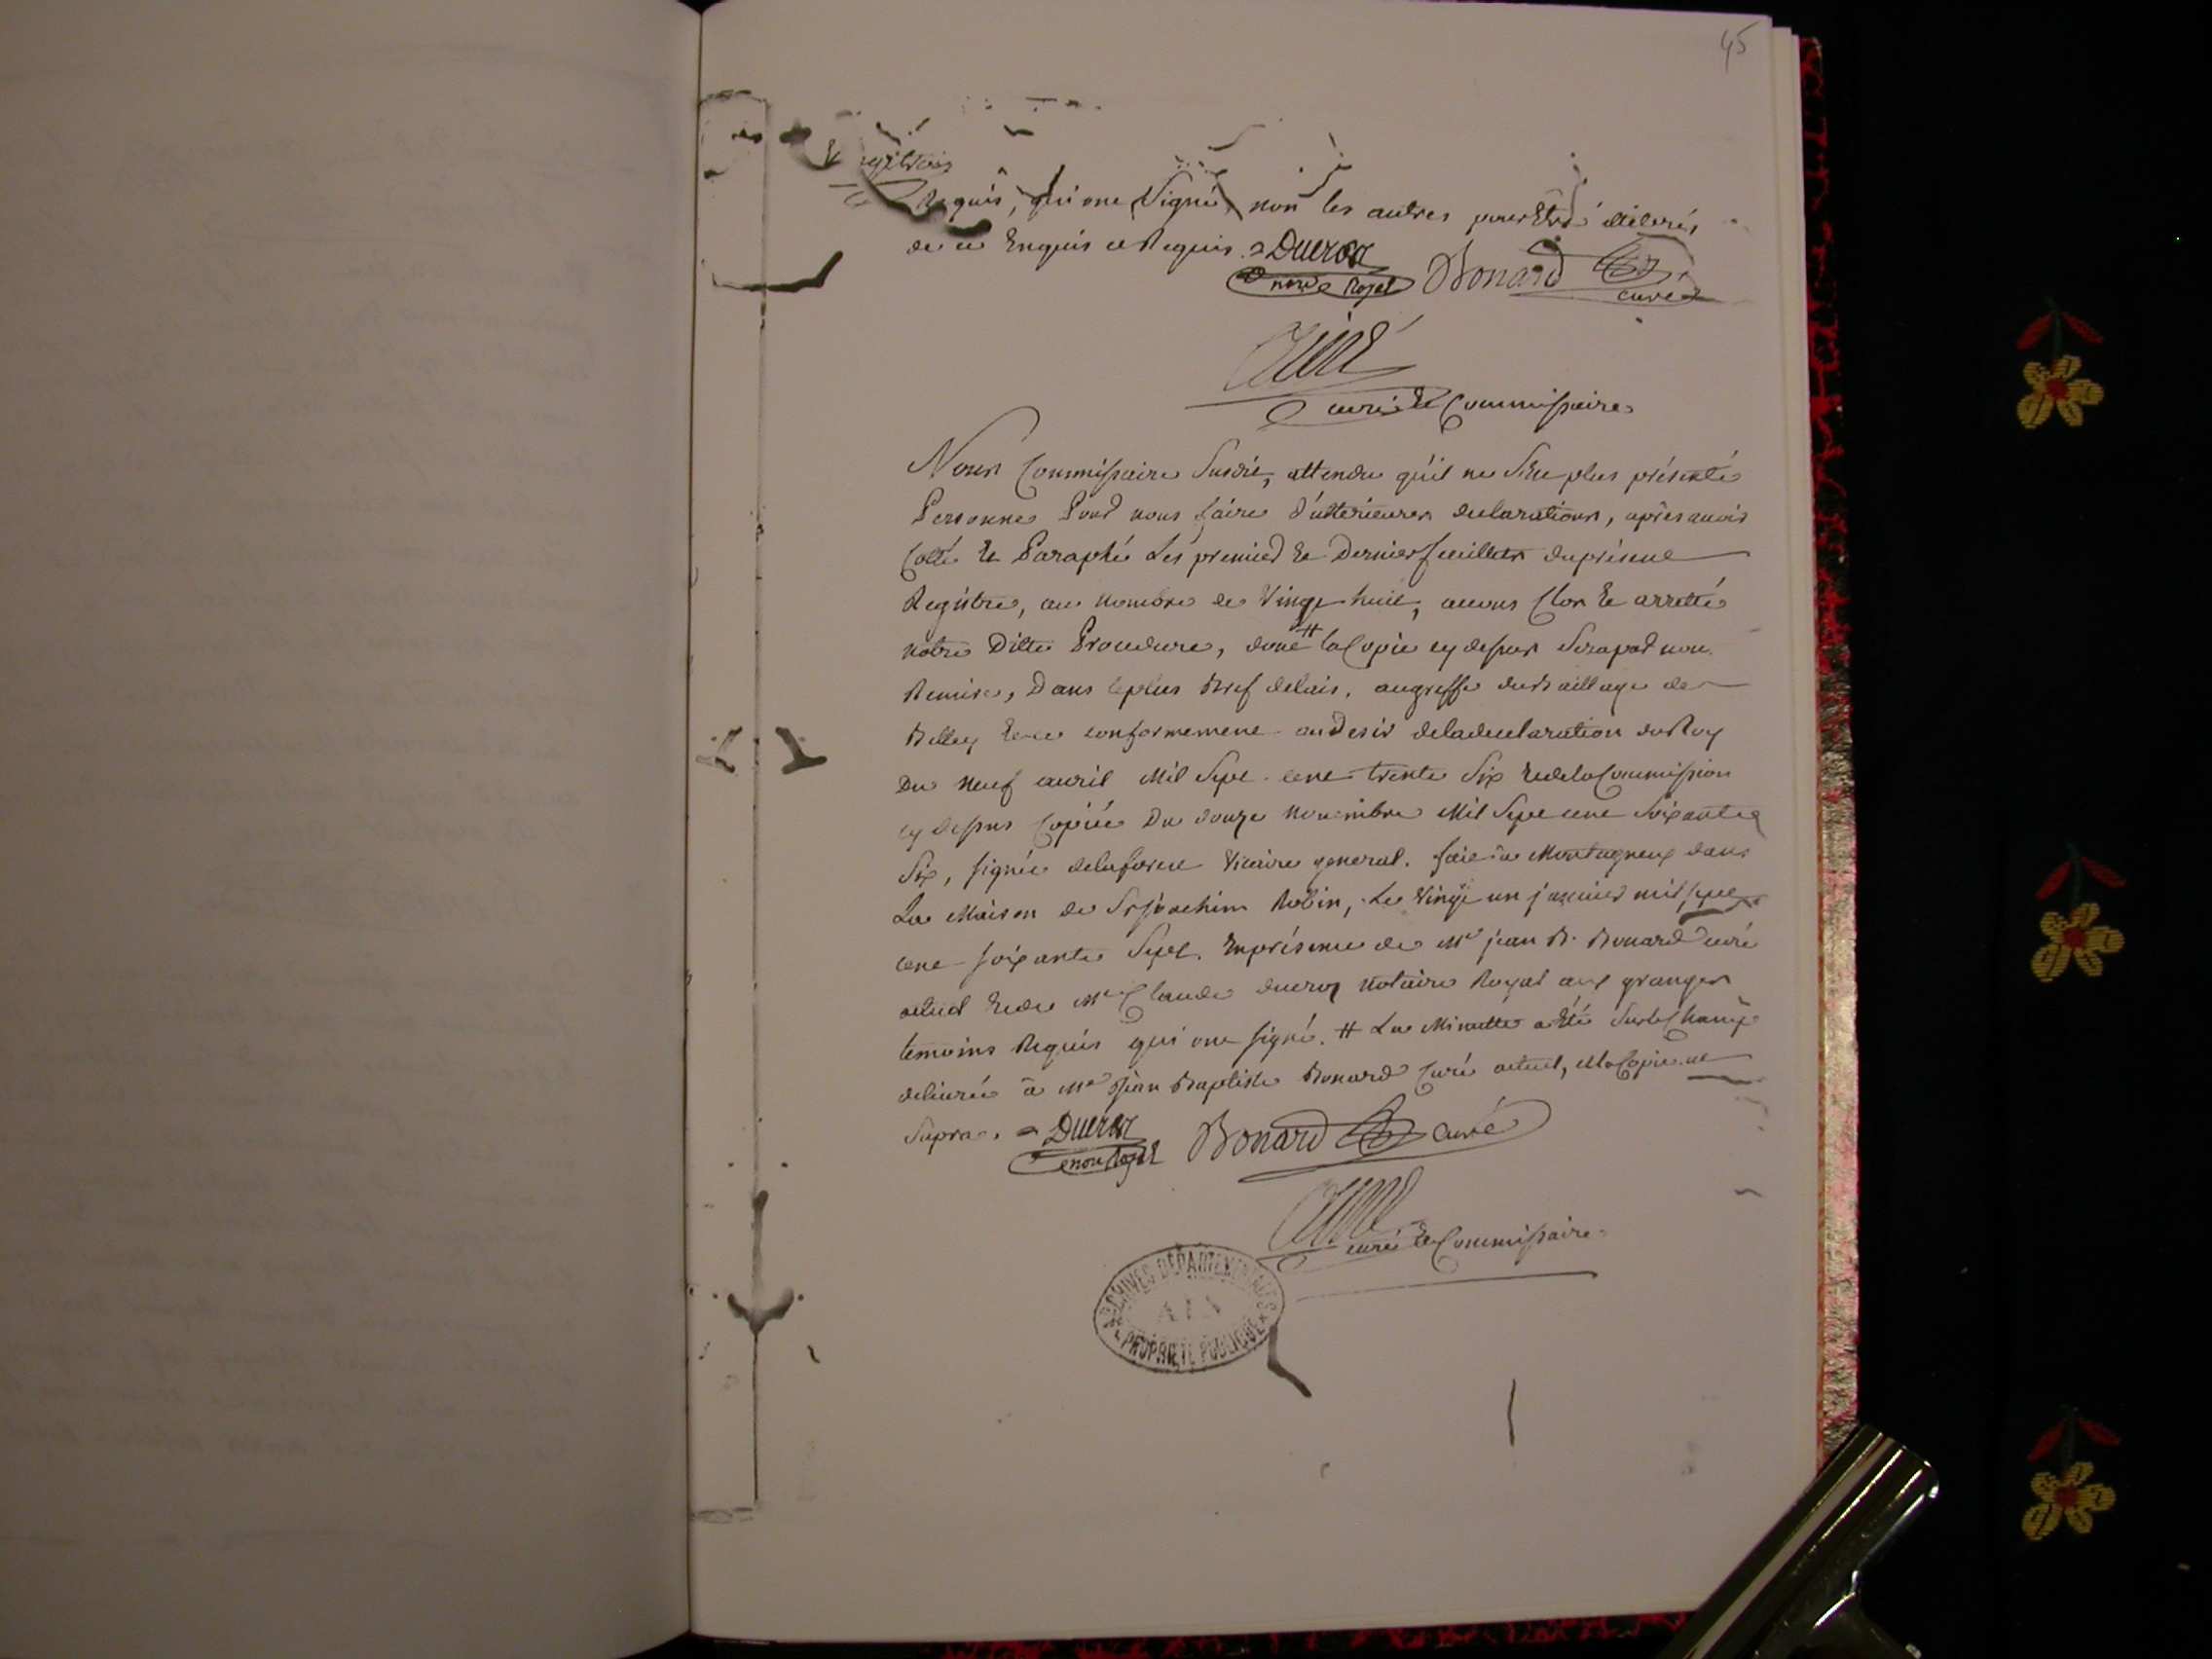 45
Requis, qui ont Signé, non les autres pour Etre illiterés
de ce Enquis et Requis. = Ducroz
notre Royal Bonard curé
curé Et Commissaire
Nous Commissaire Susdit, attendu qu'il ne S'Est plus présenté
Personne Pour nous faire d'ulterieures declarations, après avoir
Cotté Et Paraphé Les premier Et Dernier feuillets du présent
Registre, au nombre de Vingt huit, avons Clos Et arretté
notre Ditte Procedure, dont # la Copie cy dessus Sera par nous
Remise, Dans le plus Bref delais, au greffe du Baillage de
Belley Et ce conformement au Desir de la declaration du Roy
Du neuf avril Mil Sept cent trente Six Et de la Commission
cy Dessus Copiée Du douze novembre Mil Sept cent Soixante
Six, signée Vicaire general. fait à Montagneux dans
La Maison de Sr joachim Robin, Le Vingt un janvier mil sept
cent soixante Sept. En présence de Me jean B. Bonard curé
actuel Et de Me Claude ducroz notaire Royal aux granges
temoins Requis qui ont signé. # La Minutte a Eté Sur le Champ
delivrée à Me Jean Baptiste Bonard Curé actuel, Et la Copie ut
Supra. = Ducroz
notre Royal Bonard curé
curé Et Commissaire
ARCHIVES DEPARTEMENTALES
AIN
PROPRIETE PUBLIQUE